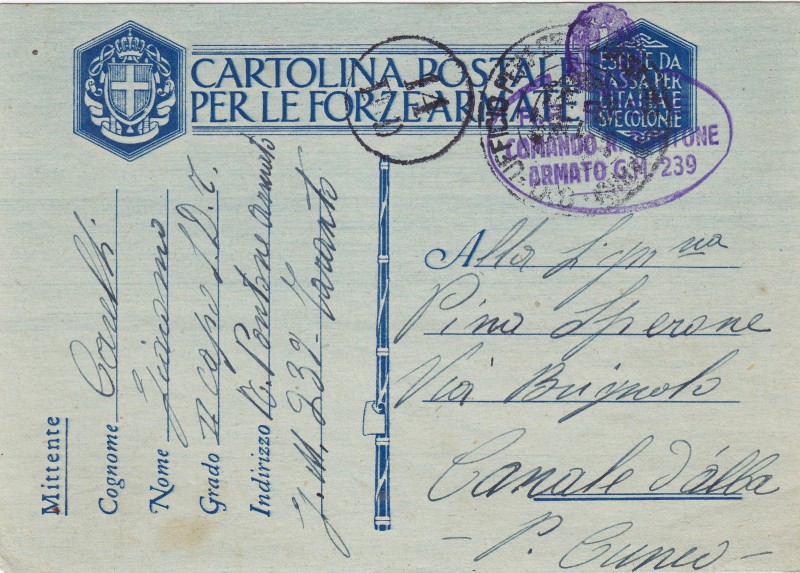 CARTOLINA POSTALE
PER LE FORZE ARMATE
ESENTE DA
TASSA PER
L'ITALIA E
SUE COLONIE
11
COMANDO R. PONTONE
ARMATO G.M. 239
Alla Sign.na
Pina Sperone
Via Brignolo
Canale d'Alba
- P. Cuneo -
Mittente
Cognome
Nome Giacomo
Grado II capo S.D.T.
Indirizzo R. Pontone armato
G.M. 239. Taranto